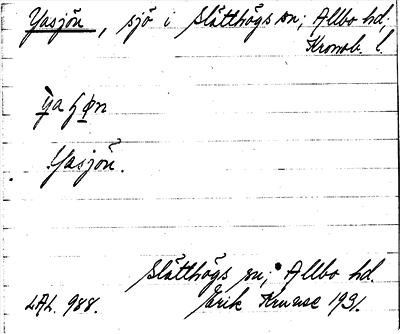 Yasjön, sjö i Slätthögs sn; Allbo hd;
Kronob. l.
Yasjön.
Slätthögs sn; Allbo hd.
LAL. 988. Erik Kruuse 1931.